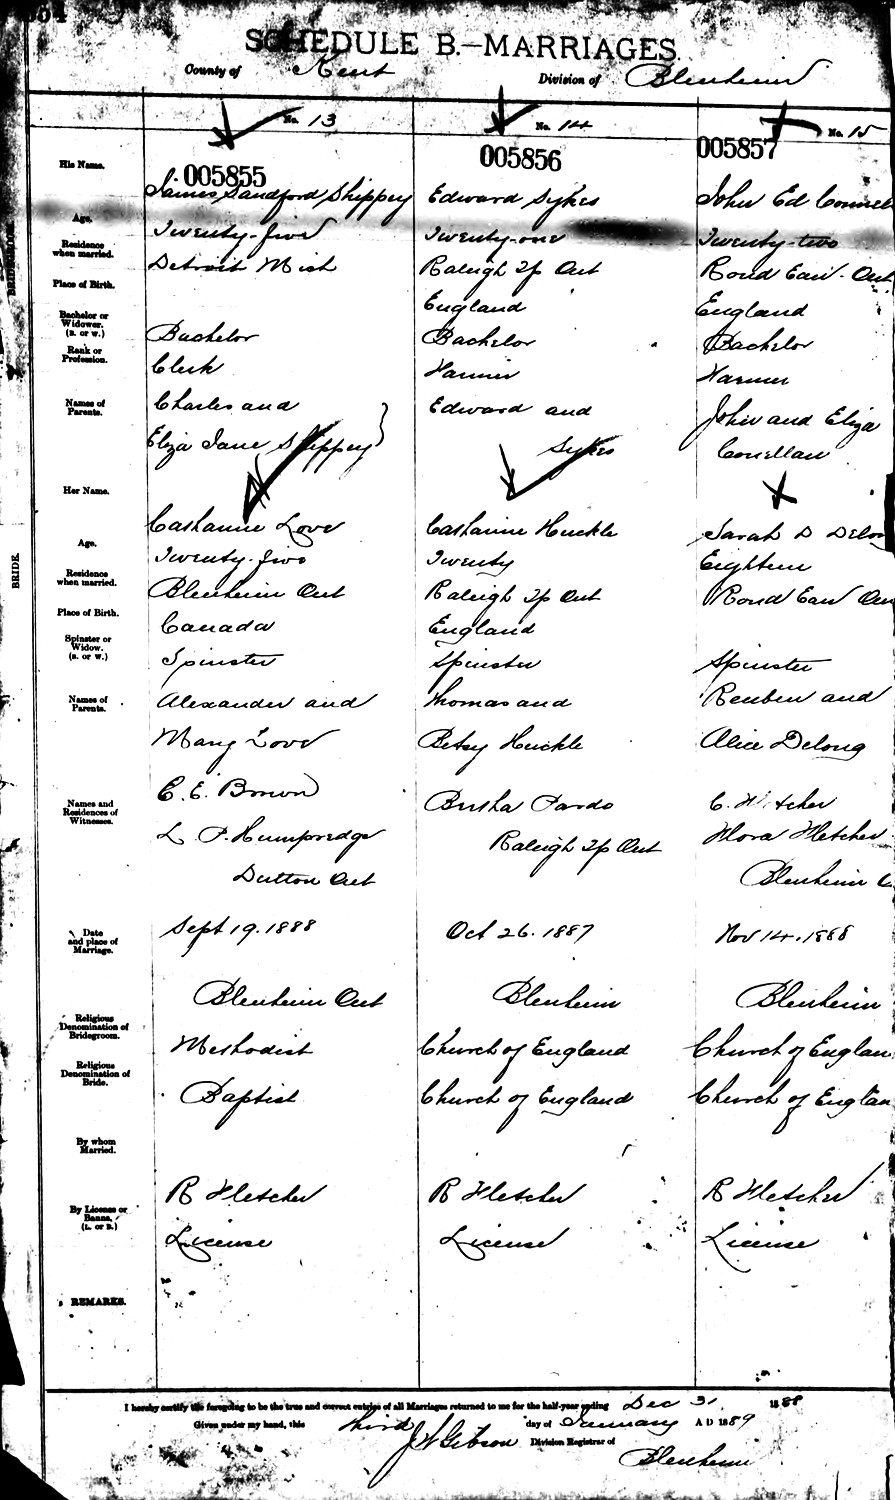 SCHEDULE B.—MARRIAGES.
County of Kent Division of Blenheim
No. 13 No. 14 No. 15
005855 005856 005857
His Name. James Sandford Shippey Edward Sykes John Ed
Age. Twenty-five Twenty-one Twenty-two
Residence when married. Detroit Mich Raleigh Tp Ont Rond Eau Ont
Place of Birth. England England
Bachelor or Widower. (B. or W.) Bachelor Bachelor Bachelor
Rank or Profession. Clerk Farmer Farmer
Names of Parents. Charles and Edward and John and Eliza
Eliza Jane Shippey Sykes
Her Name.
BRIDE.
Catharine Love Catharine Huckle Sarah D Delong
Age. Twenty-five Twenty Eighteen
Residence when married. Blenheim Ont Raleigh Tp Ont Rond Eau Ont
Place of Birth. Canada England
Spinster or Widow. (S. or W.) Spinster Spinster Spinster
Names of Parents. Alexander and Thomas and Reuben and
Mary Love Betsy Huckle Alice Delong
Names and Residences of Witnesses. C. E. Brown Pardo C.
L. P. Flora Fletcher
Raleigh Tp Ont
Dutton Ont Blenheim
Date and place of Marriage. Sept 19. 1888 Oct 26. 1887 Nov 14. 1888
Blenheim Ont Blenheim Blenheim
Religious Denomination of Bridegroom. Methodist Church of England Church of Englan
Religious Denomination of Bride. Baptist Church of England Church of Englan
By whom Married. R Fletcher R Fletcher R Fletcher
By License or Banns. (L. or B.) License License License
REMARKS.
I hereby certify the foregoing to be the true and correct entries of all Marriages returned to me for the half-year ending Dec 31 1888
Given under my hand, this third day of January A D 1889
J W Gibson Division Registrar of
Blenheim